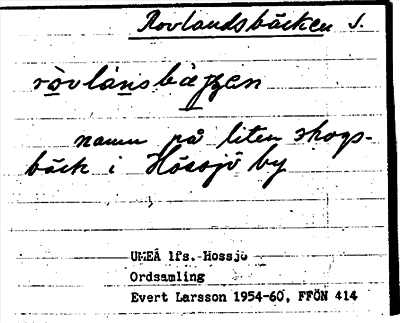 Rovlandsbäcken S.
namn på liten skogs-
bäck i Hössjö by
UMEÅ lfs. Hössjö
Ordsamling
Evert Larsson 1954-60, FFÖN 414